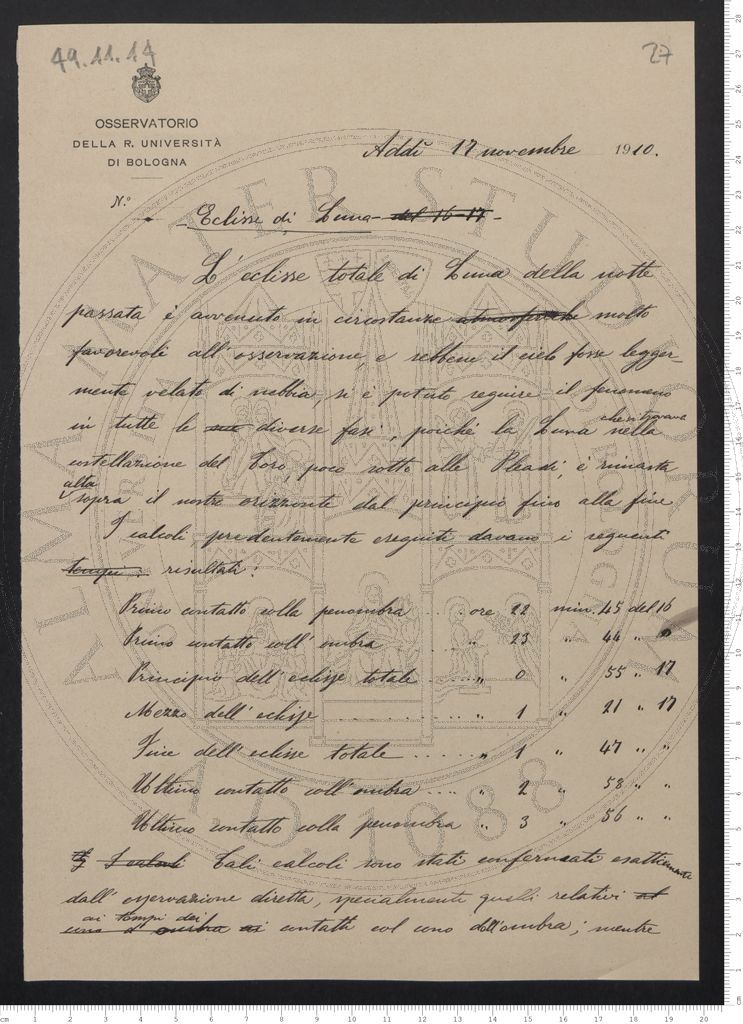 49.11.14
27
OSSERVATORIO
DELLA R. UNIVERSITÀ
DI BOLOGNA
Addì 17 novembre 1910.
N.°
Eclisse di Luna - del 16-17 -
L'eclisse totale di Luna della notte
passata è avvenuto in circostanze atmosferiche molto
favorevoli all'osservazione, e sebbene il cielo fosse legger-
mente velato di nebbia, si è potuto seguire il fenomeno
in tutte le sue diverse fasi, poiché la Luna che si trovava nella
costellazione del Toro, poco sotto alle Pleadi, è rimasta
alta sopra il nostro orizzonte dal principio fino alla fine
I calcoli, prudentemente eseguiti davano i seguenti
tempi: risultati:
Primo contatto colla penombra .... ore 22 min. 45 del 16
Primo contatto coll'ombra .... " 23 " 44 " "
Principio dell'eclisse totale .... " 0 " 55 " 17
Mezzo dell'eclisse .... " 1 " 21 " 17
Fine dell'eclisse totale .... " 1 " 47 " "
Ultimo contatto coll'ombra .... " 2 " 58 " "
Ultimo contatto colla penombra " 3 " 56 " "
I calcoli Tali calcoli sono stati confermati esattamente
dall'osservazione diretta, specialmente quelli relativi al
cono d'ombra ai tempi dei contatti col cono dell'ombra; mentre
ALMA MATER STUDIORUM
A.D. 1088